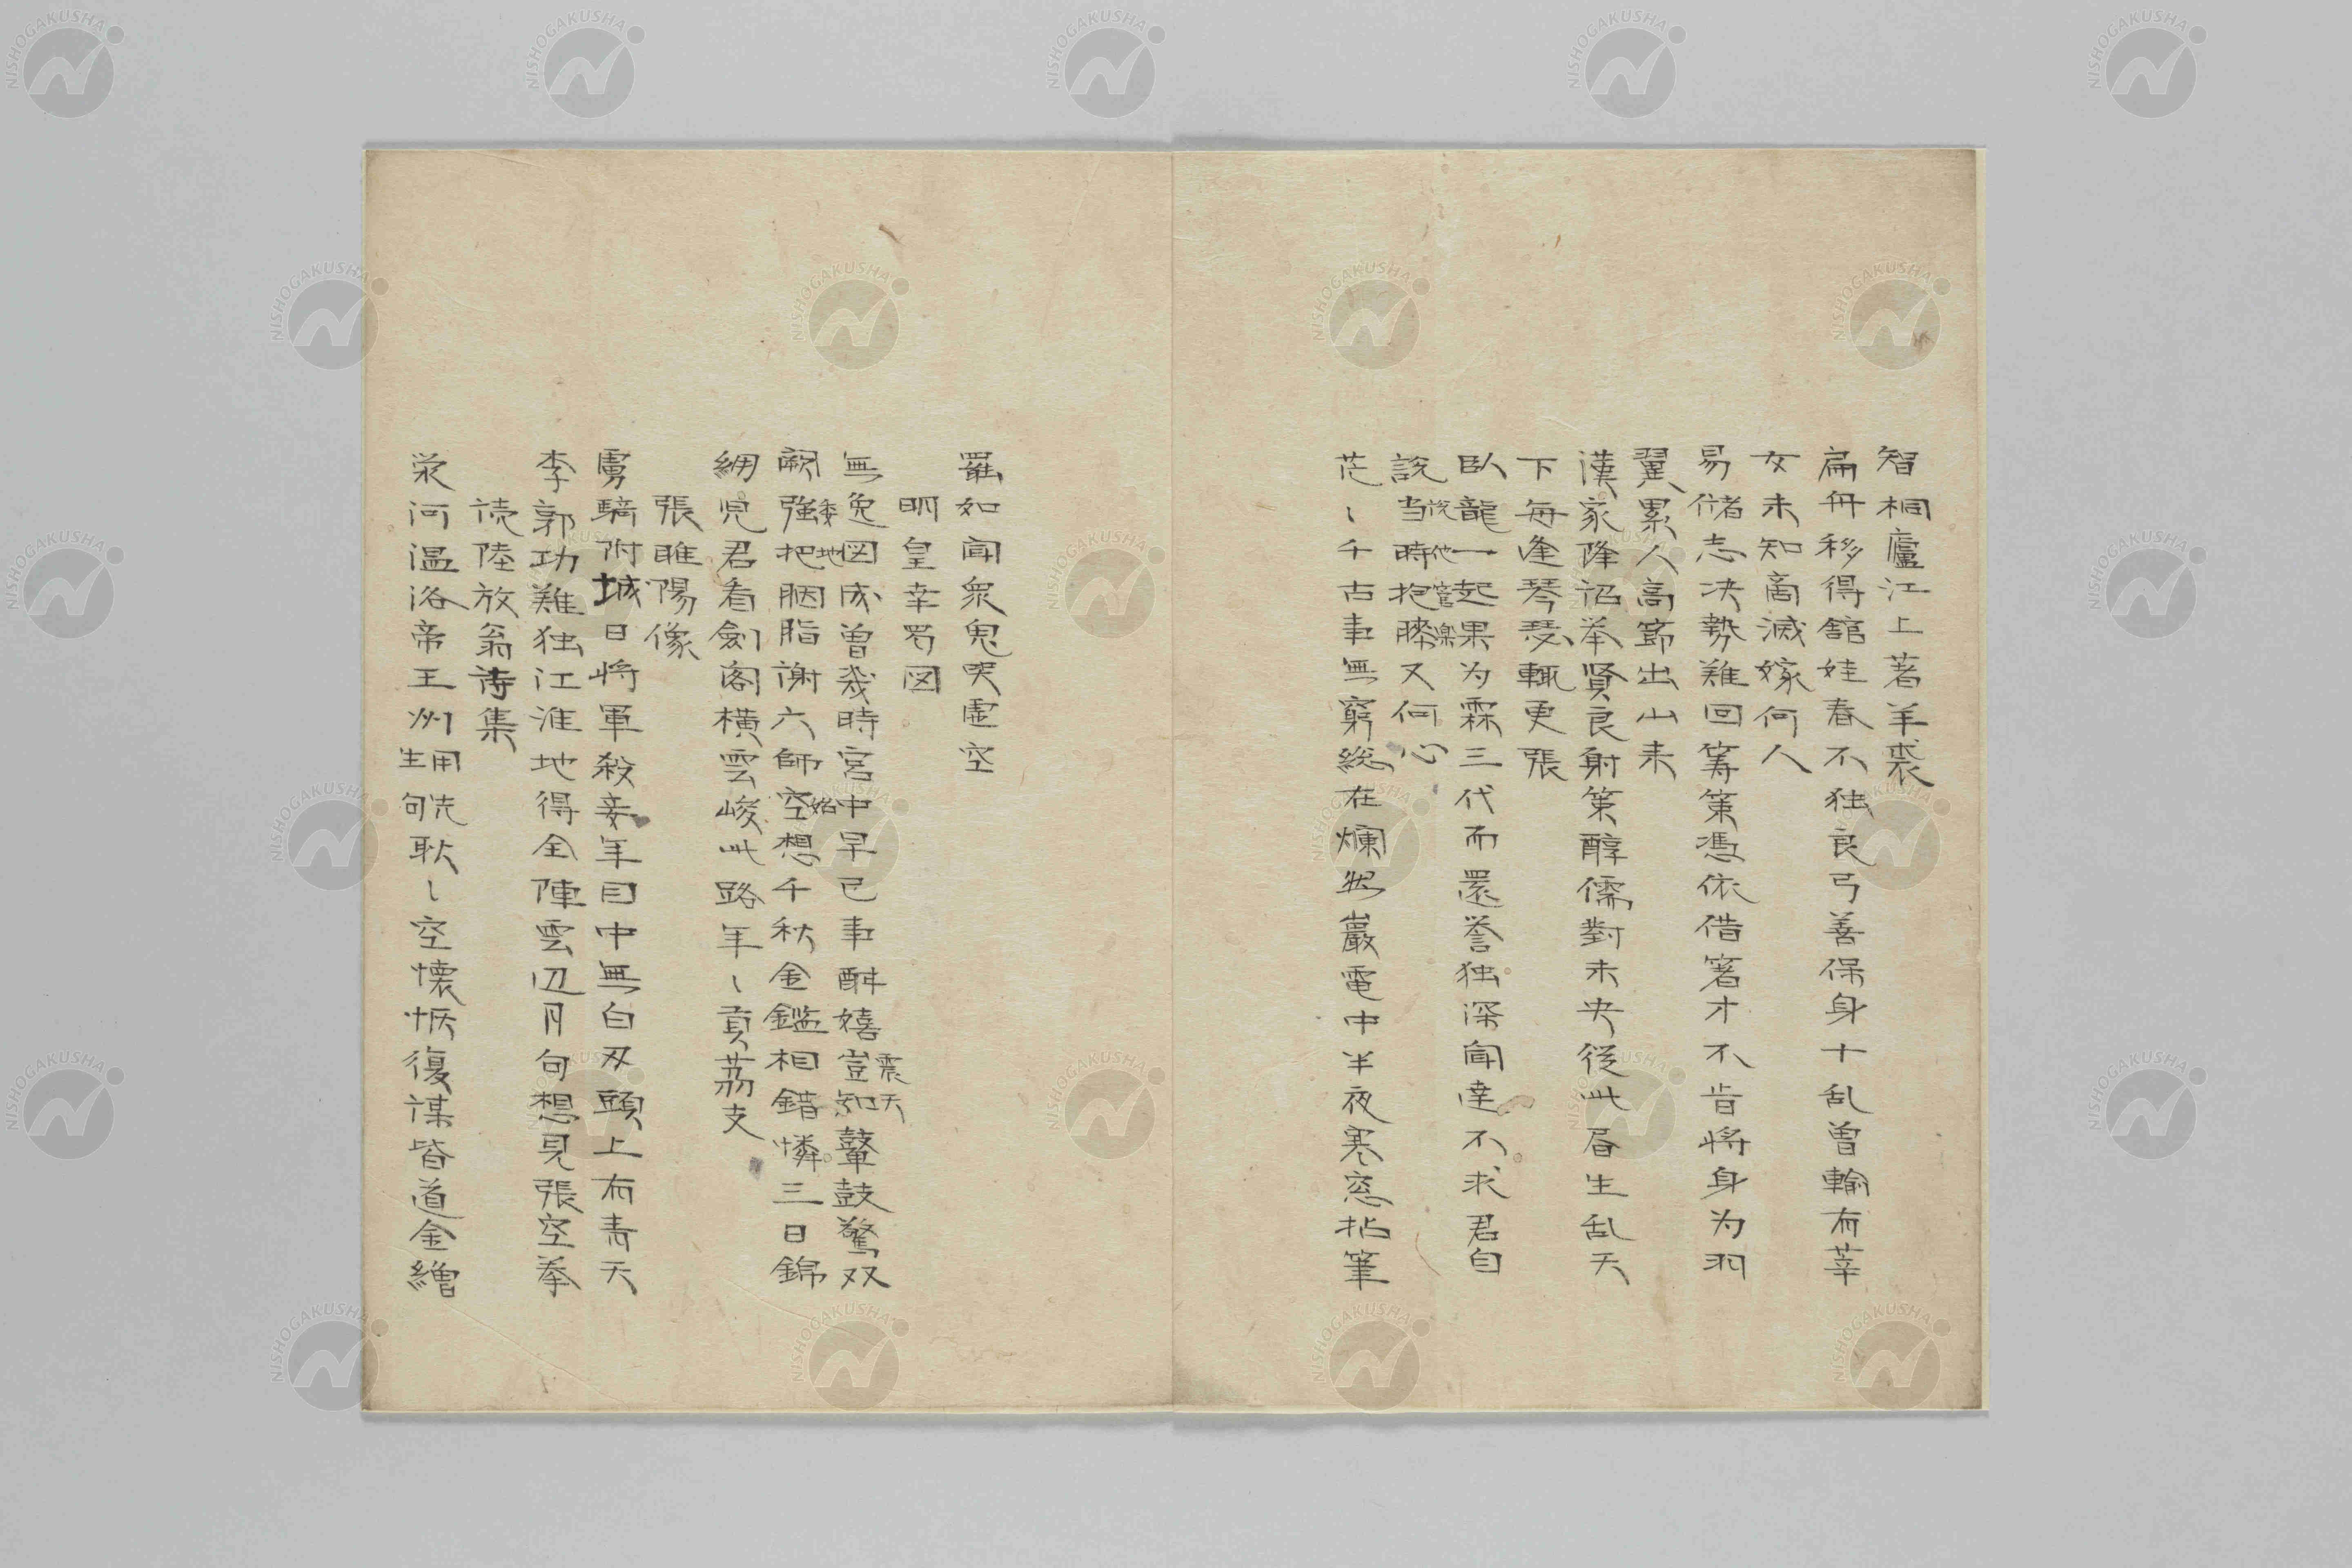 智桐廬江上著羊裘
扁舟移得舘娃春不独良弓善保身十乱曽輸有莘
女未知啇滅嫁何人
易儲志决勢難回筭策憑依借箸才不肯将身为羽
翼累人高節出山来
漢家降詔挙賢良射策醇儒對未央従此眉生乱天
下毎逢琴瑟輒更張
臥龍一起果为霖三代而還誉独深聞達不求君自
説当時抱膝又何心
茫〻千古事無窮総在爛然巖電中半夜寒窓拈筆
羅如聞衆鬼哭虚空
明皇幸蜀図
無逸図成曽幾時宮中早已事酣嬉豈知鼙鼓驚双
震天
闕強把胭脂謝六師空想千秋金鑑相錯憐三日錦
委地
始
綳児君看劍閣横雲峻此路年〻貢茘支
張睢陽像
虜騎附城日将軍殺妾年目中無白刃頭上有青天
李郭功難独江淮地得全陣雲辺月句想見張空拳
読陸放翁詩集
滎河温洛帝王州用先生句耿〻空懐恢復謀皆道金繒